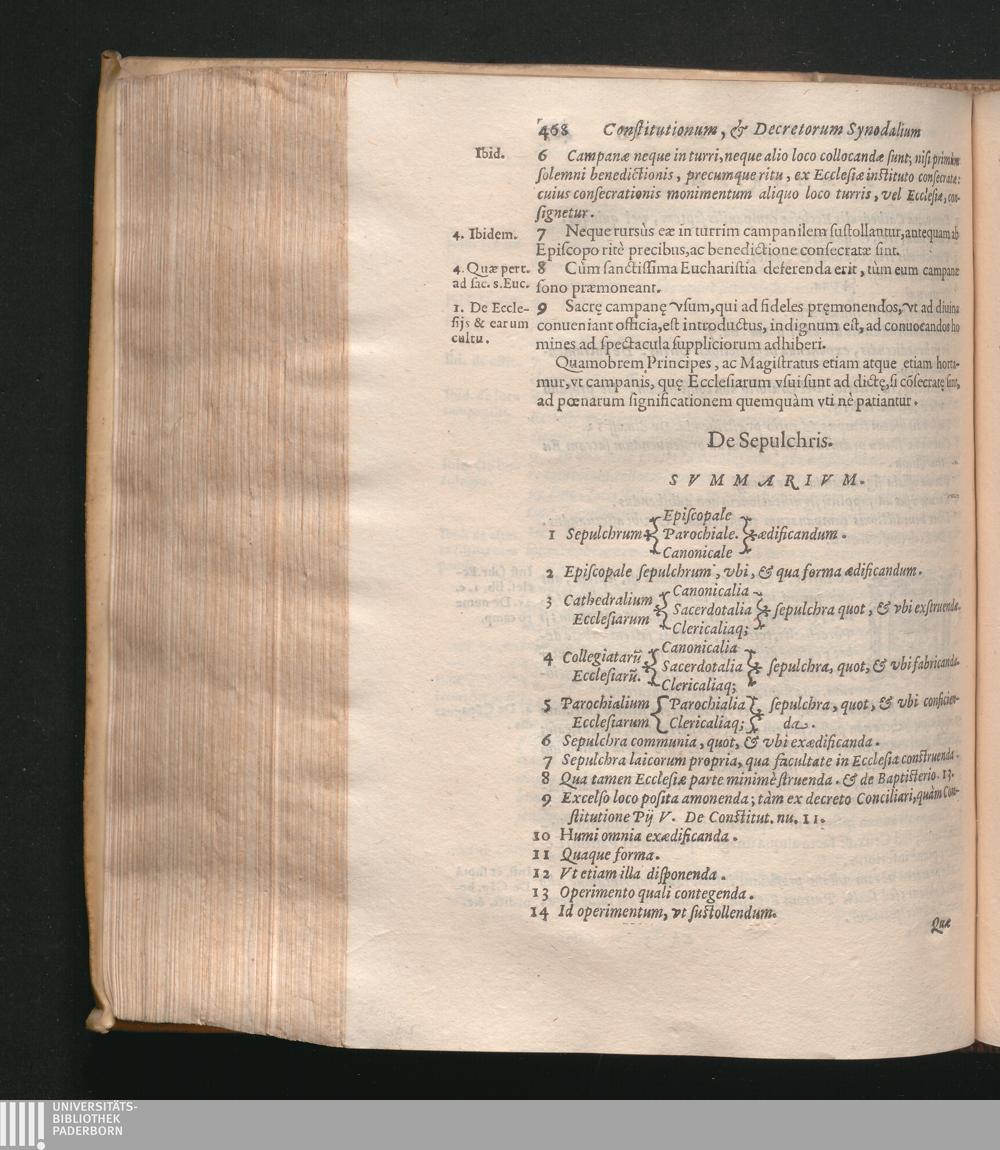 468 Conſtitutionum, & Decretorum Synodalium
Ibid.
6 Campanæ neque in turri, neque alio loco collocandæ ſunt, niſi primùm
ſolemni benedictionis, precumque ritu, ex Eccleſiæ inſtituto conſecratæ:
cuius conſecrationis monimentum aliquo loco turris, vel Eccleſiæ, con-
ſignetur.
4. Ibidem.
7 Neque rursùs eæ in turrim campanilem ſuſtollantur, antequam ab
Epiſcopo ritè precibus, ac benedictione conſecratæ ſint.
4. Quæ pert.
ad ſac. s. Euc.
8 Cùm ſanctiſſima Euchariſtia deferenda erit, tùm eum campanæ
ſono præmoneant.
1. De Eccle-
ſijs & earum
cultu.
9 Sacrę campanę vſum, qui ad fideles pręmonendos, vt ad diuina
conueniant officia, eſt introductus, indignum eſt, ad conuocandos ho
mines ad ſpectacula ſuppliciorum adhiberi.
Quamobrem Principes, ac Magiſtratus etiam atque etiam horta-
mur, vt campanis, quę Eccleſiarum vſui ſunt addictę, ſi cõſecratę ſint,
ad pœnarum ſignificationem quemquàm vti nè patiantur.
De Sepulchris.
SVMMARIVM.
1 Sepulchrum { Epiſcopale
Parochiale. } ædificandum.
Canonicale
2 Epiſcopale ſepulchrum, vbi, & qua forma ædificandum.
3 Cathedralium Eccleſiarum { Canonicalia
Sacerdotalia } ſepulchra quot, & vbi exſtruenda.
Clericaliaq;
4 Collegiatarũ Eccleſiarũ. { Canonicalia
Sacerdotalia } ſepulchra, quot, & vbi fabricanda.
Clericaliaq;
5 Parochialium { Parochialia } ſepulchra, quot, & vbi conficien-
Eccleſiarum { Clericaliaq; } da.
6 Sepulchra communia, quot, & vbi exædificanda.
7 Sepulchra laicorum propria, qua facultate in Eccleſia conſtruenda.
8 Qua tamen Eccleſiæ parte minimè ſtruenda. & de Baptiſterio. 13.
9 Excelſo loco poſita amonenda; tàm ex decreto Conciliari, quàm Con-
ſtitutione Pij V. De Conſtitut. nu. 11.
10 Humi omnia exædificanda.
11 Quaque forma.
12 Vt etiam illa diſponenda.
13 Operimento quali contegenda.
14 Id operimentum, vt ſuſtollendum.
Quæ
UNIVERSITÄTS-
BIBLIOTHEK
PADERBORN